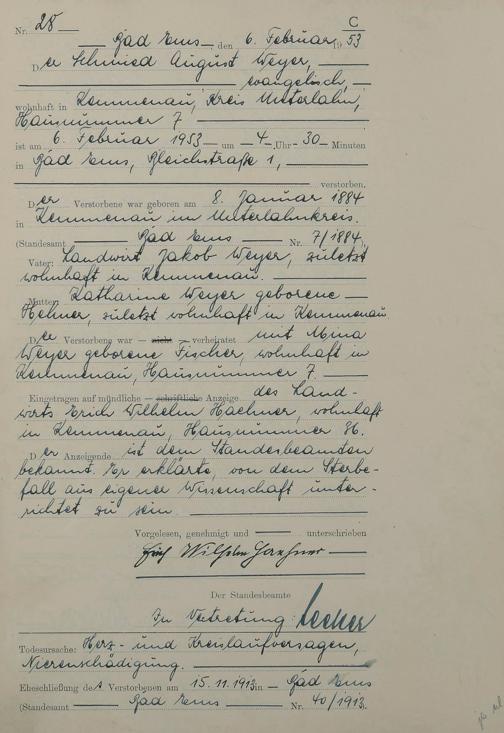 Nr. 28 C
Bad Ems, den 6. Februar 1953
Der Schmied August Weyer,
evangelisch,
wohnhaft in Kemmenau, Kreis Unterlahn,
Hausnummer 7
ist am 6. Februar 1953 um 4 Uhr 30 Minuten
in Bad Ems, Bleichstraße 1,
verstorben.
Der Verstorbene war geboren am 8. Januar 1884
in Kemmenau im Unterlahnkreis.
(Standesamt Bad Ems Nr. 7/1884)
Vater: Landwirt Jakob Weyer, zuletzt
wohnhaft in Kemmenau.
Mutter: Katharine Weyer geborene
Hehner, zuletzt wohnhaft in Kemmenau
Der Verstorbene war — nicht — verheiratet mit Mina
Weyer geborene Fischer, wohnhaft in
Kemmenau, Hausnummer 7.
Eingetragen auf mündliche — schriftliche Anzeige des Land-
wirts Erich Wilhelm Haehner, wohnhaft
in Kemmenau, Hausnummer 86.
Der Anzeigende ist dem Standesbeamten
bekannt. Er erklärte, von dem Sterbe-
fall aus eigener Wissenschaft unter-
richtet zu sein.
Vorgelesen, genehmigt und unterschrieben
Erich Wilhelm Haehner
Der Standesbeamte
In Vertretung:
Todesursache: Herz- und Kreislaufversagen,
Nierenschädigung.
Eheschließung des Verstorbenen am 15.11.1913 in Bad Ems
(Standesamt Bad Ems Nr. 40/1913).